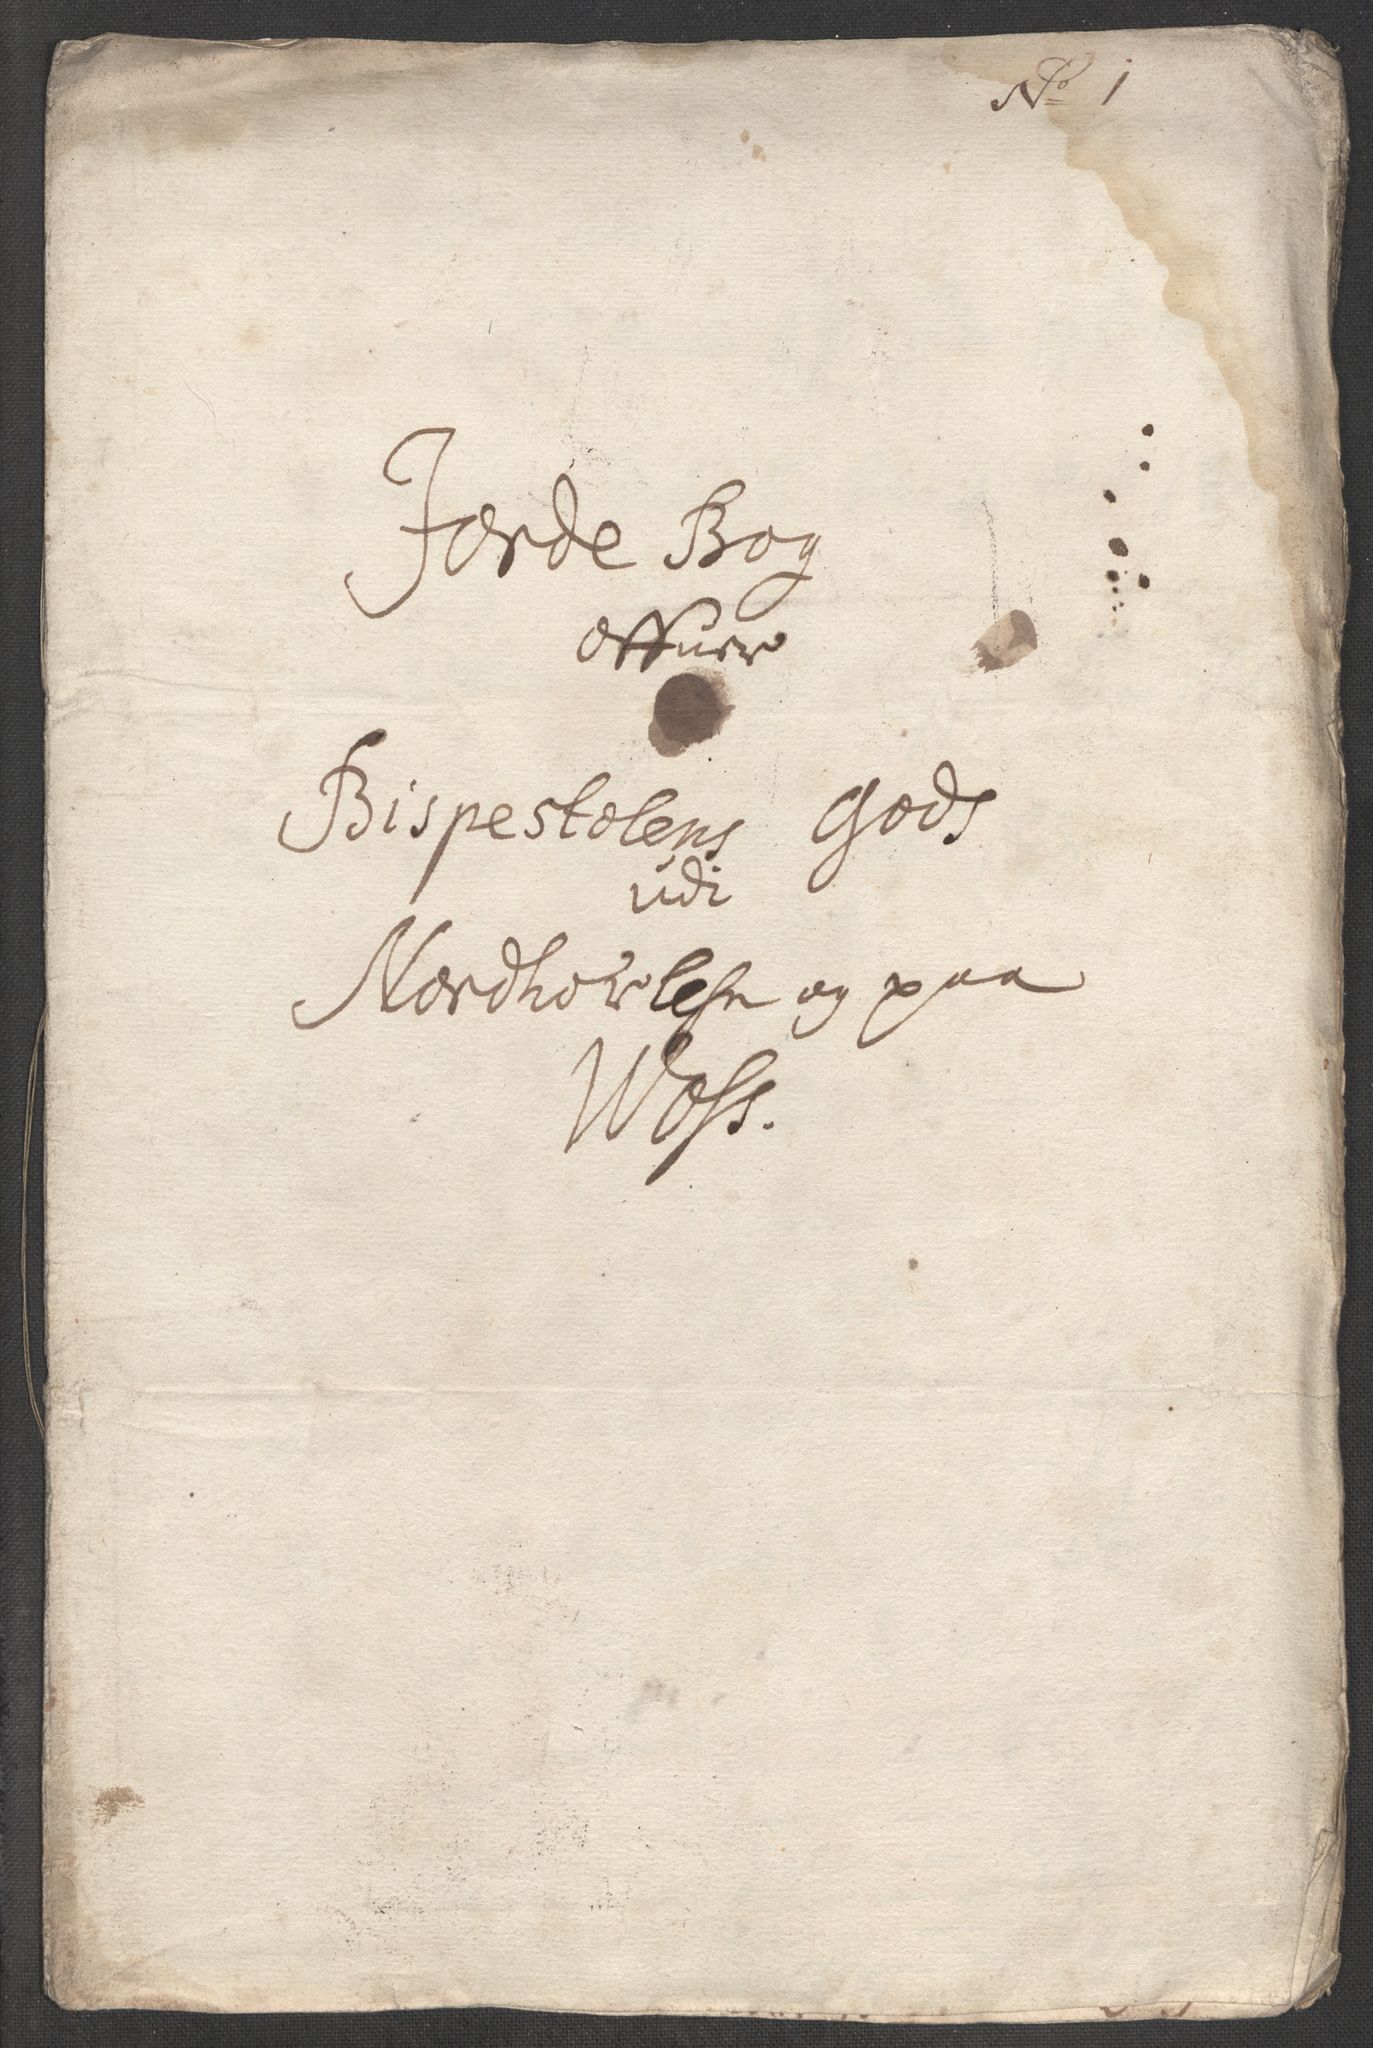 No 1
Jorde Bog
offuer
Bispestolens Gods
udi
Nordhorlehn og paa
Woss.